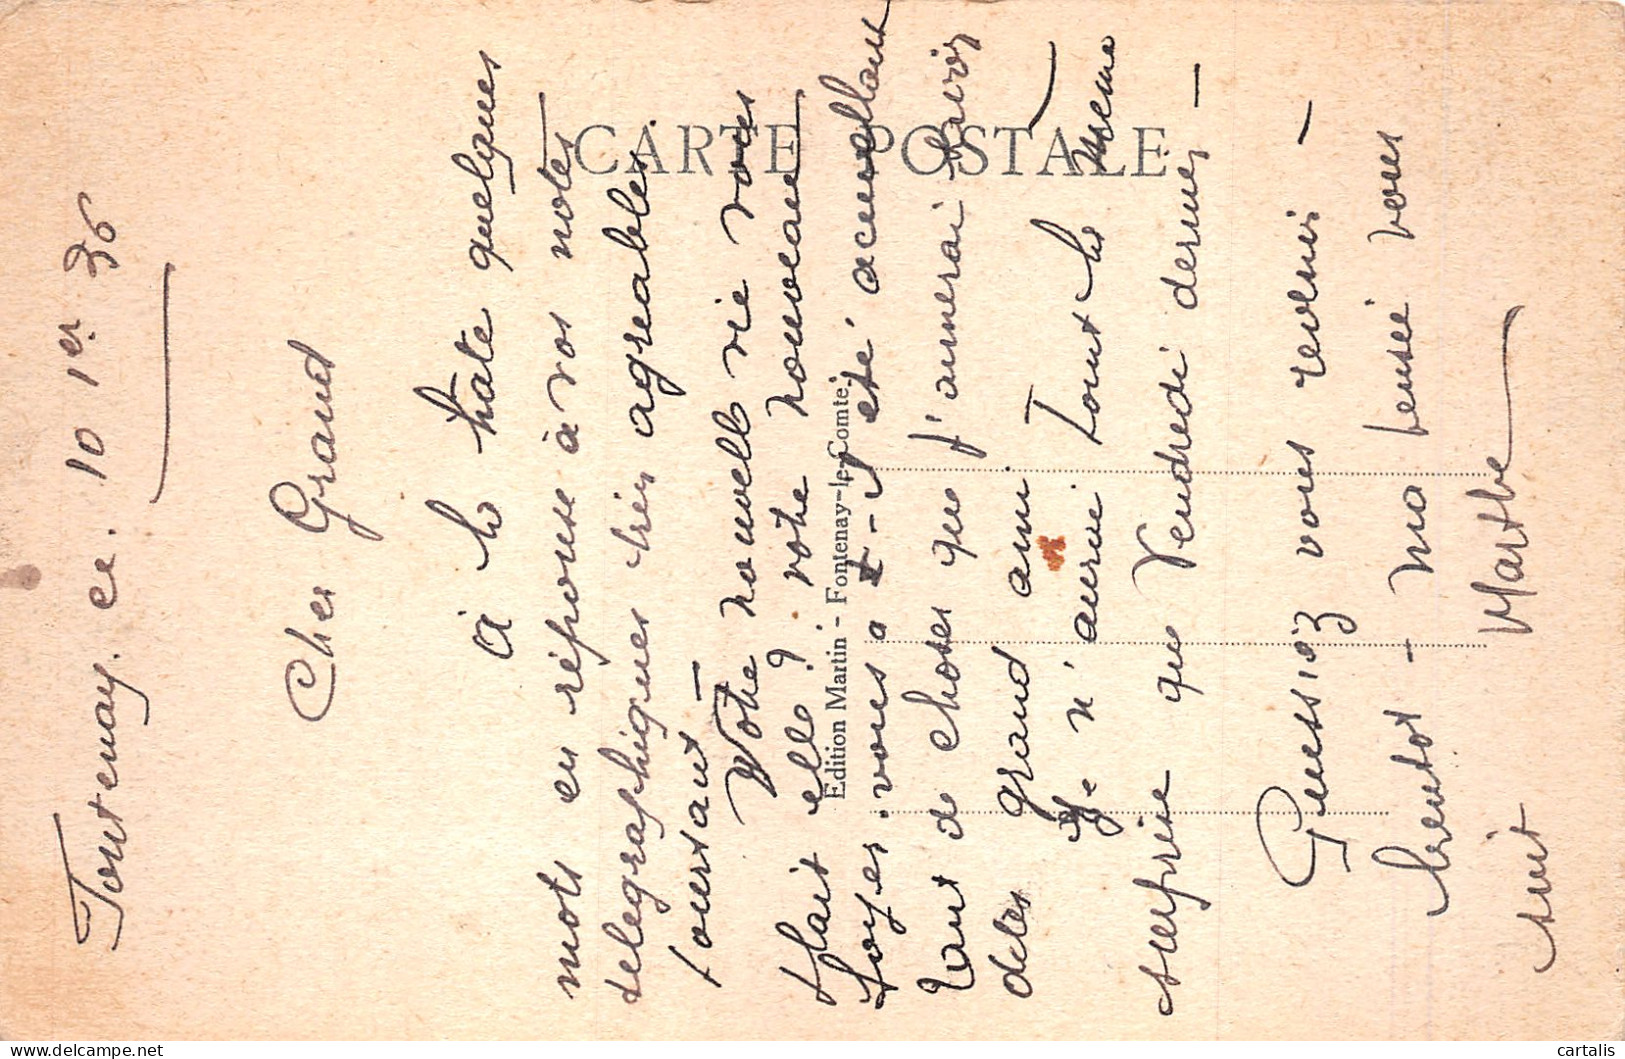 Fontenay. ce. 10 1er 36
Cher Grand
à la hate quelques
mots en réponse à vos notes
telegraphiques très agreables.
pourtant —
Votre nouvelle vie vous
plait elle? votre nouveau
foyer. vous a t-il été accueillant
tant de choses que j'aimerai savoir
cher grand ami. Tout de même
Je n'aurai
surprise que Vendredi dernier —
Guessiez vous revenir —
bientot — ma pensée vous
suit Marthe
CARTE POSTALE
Edition Martin - Fontenay-le-Comte
cartalis